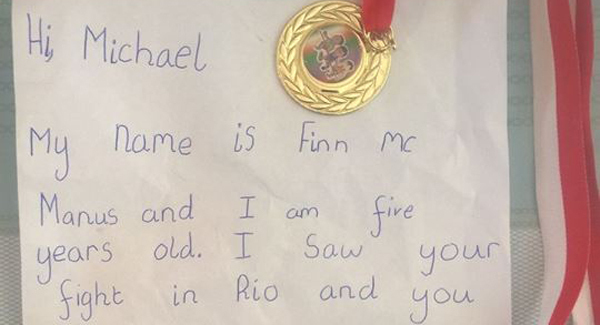 Hi, Michael
My name is Finn Mc
Manus and I am five
years old. I Saw your
fight in Rio and you